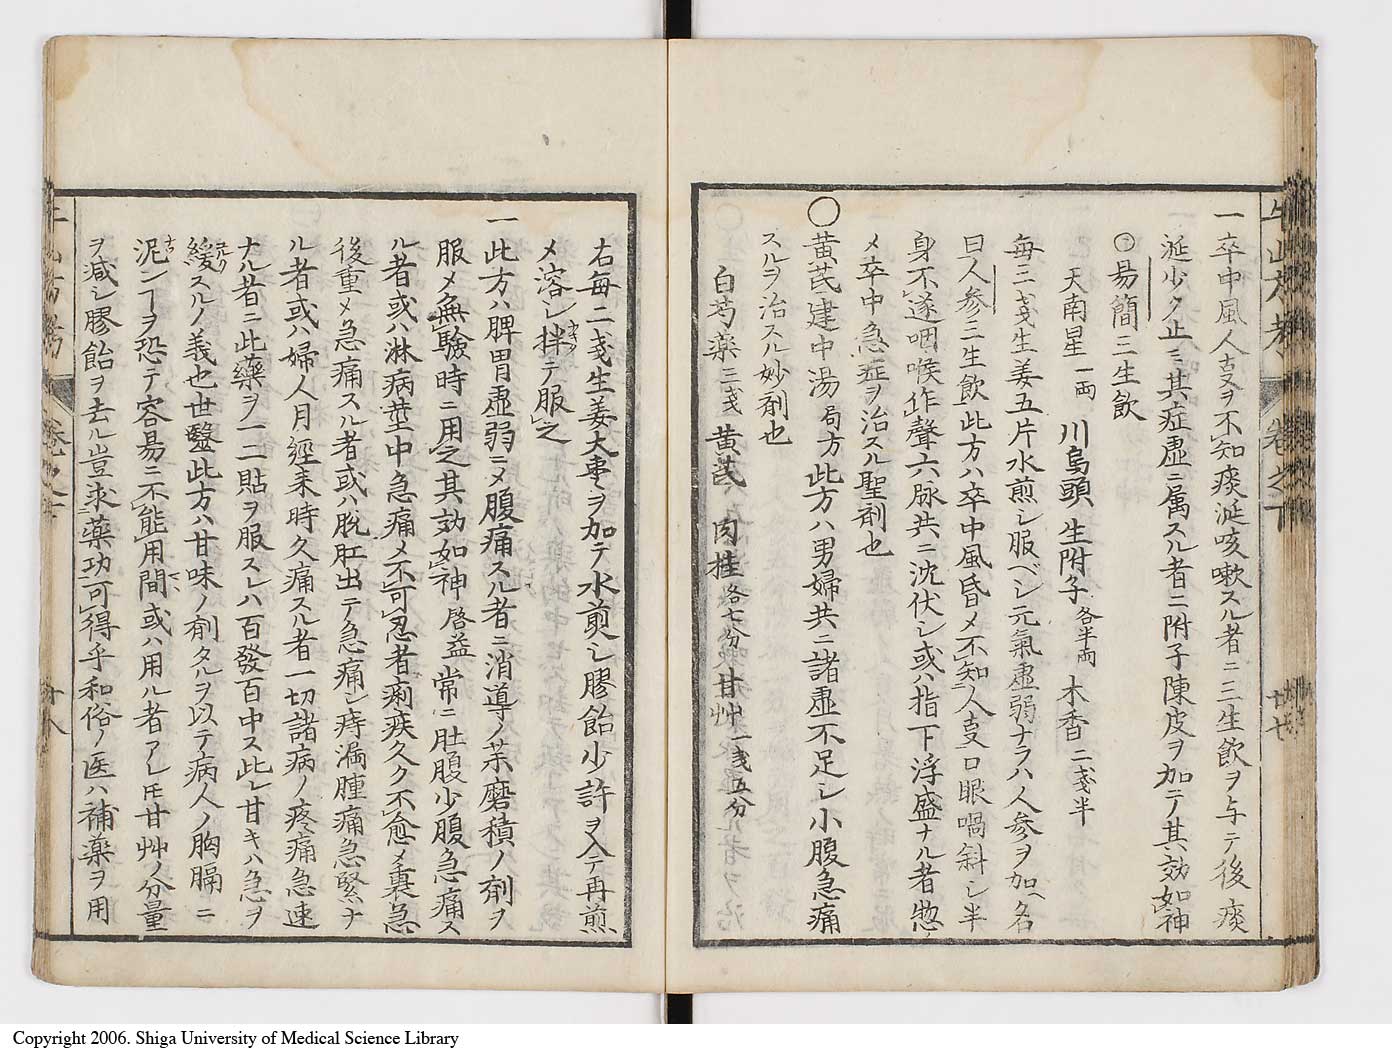 一卒中風人事ヲ不知痰涎咳嗽スル者ニ三生飲ヲ与テ後痰
涎少ク止ミ其症虚ニ属スル者ニ附子陳皮ヲ加テ其効如神
易簡三生飲
天南星一両 川烏頭 生附子各半両 木香二戔半
毎三戔生姜五片水煎シ服ベシ元氣虚弱ナラハ人参ヲ加ヘ名
曰人参三生飲此方ハ卒中風昏メ不知人事口眼喎斜シ半
身不遂咽喉作聲六脉共ニ沈伏シ或ハ指下浮盛ナル者惣
メ卒中急症ヲ治スル聖剤也
〇黄芪建中湯局方此方ハ男婦共ニ諸虚不足シ小腹急痛
スルヲ治スル妙剤也
白芍薬三戔 黄芪 肉桂各七分 甘艸一戔五分
右毎二戔生姜大枣ヲ加テ水煎シ膠飴少許ヲ入テ再煎
メ溶シ拌テ服之
一此方ハ脾胃虚弱ニメ腹痛スル者ニ消導ノ茱磨積ノ剤ヲ
服メ無験時ニ用之其効如神啓益常ニ肚腹少腹急痛ス
ル者或ハ淋病莖中急痛メ不可忍者痢疾久ク不愈メ裏急
後重メ急痛スル者或ハ脱肛出テ急痛シ痔漏腫痛急緊ナ
ル者或ハ婦人月經来時久痛スル者一切諸病ノ疼痛急速
ナル者ニ此藥ヲ一二貼ヲ服スレハ百發百中ス此レ甘キハ急ヲ
緩スルノ義也世醫此方ハ甘味ノ剤タルヲ以テ病人ノ胸膈ニ
泥ンヿヲ恐テ容易ニ不能用間或ハ用ル者アレ𪜈甘艸ノ分量
ヲ減シ膠飴ヲ去ル豈求薬功可得乎和俗ノ医ハ補薬ヲ用
Copyright 2006. Shiga University of Medical Science Library